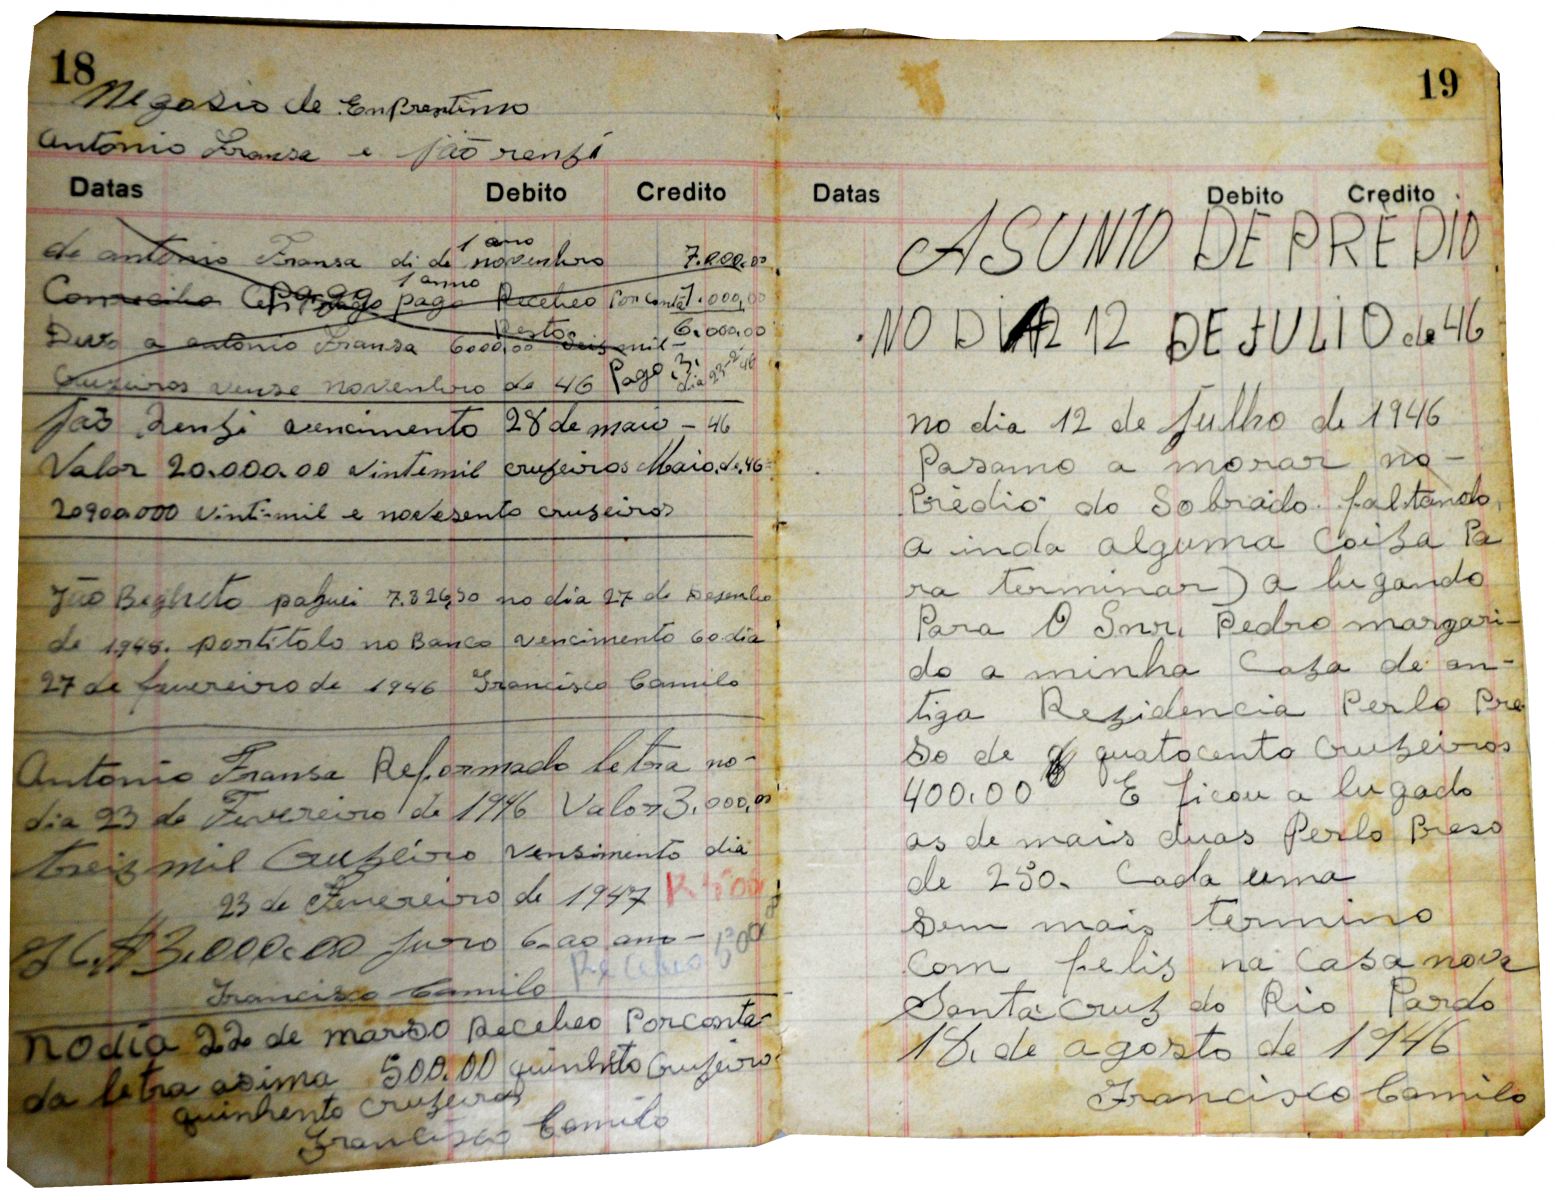 18
Negosio de Enprestimo
Antonio Fransa e João renzi
Datas Debito Credito
1 ano
de antonio Fransa di de novenbro 7.000,00
1 anno
Pago pago Recebeo por conta 1.000,00
Resto 6.000,00
Devo a antonio Fransa 6000,00 seis mil
Cruzeiros vense novenbro de 46 Pago 3.
dia 23 2 46
João Renzi vencimento 28 de maio - 46
Valor 20.000.00 vintemil cruzeiros Maio, de, 46=
20900.000 vinti-mil e novesento cruzeiros
João Begheto paguei 7.326,50 no dia 27 de Desenbro
de 1945. portitolo no Banco vencimento 60 dia
27 de fevereiro de 1946 Francisco Camilo
Antonio Fransa Reformado letra no-
dia 23 de Fevereiro de 1946 Valor 3.000,00
treiz mil Cruzeiro vensimento dia
23 de Fevereiro de 1947
$3.000.00 juro 6- ao ano-
Recebeo 500
Francisco Camilo
no dia 22 de marso Recebeo Porconta-
da letra asima 500.00 quinhẽto Cruzeiro
quinhento cruzeiros
Francisco Camilo
19
Datas Debito Credito
ASUNTO DE PRÉDIO
NO DIA 12 DE JULIO de 46
no dia 12 de Julho de 1946
Pasamo a morar no-
Prédio do Sobrado. faltando,
a inda alguma Coiza Pa
ra terminar) a lugando
Para O Snr. Pedro margari-
do a minha Caza de an-
tiga Rezidencia Perlo Pre
so de quatocento Cruzeiros
400.00 E ficou a lugado
as de mais duas Perlo Preso
de 250. Cada uma
sem mais termino
Com feliz na Casa nova
Santa Cruz do Rio Pardo
18. de agosto de 1946
Francisco Camilo